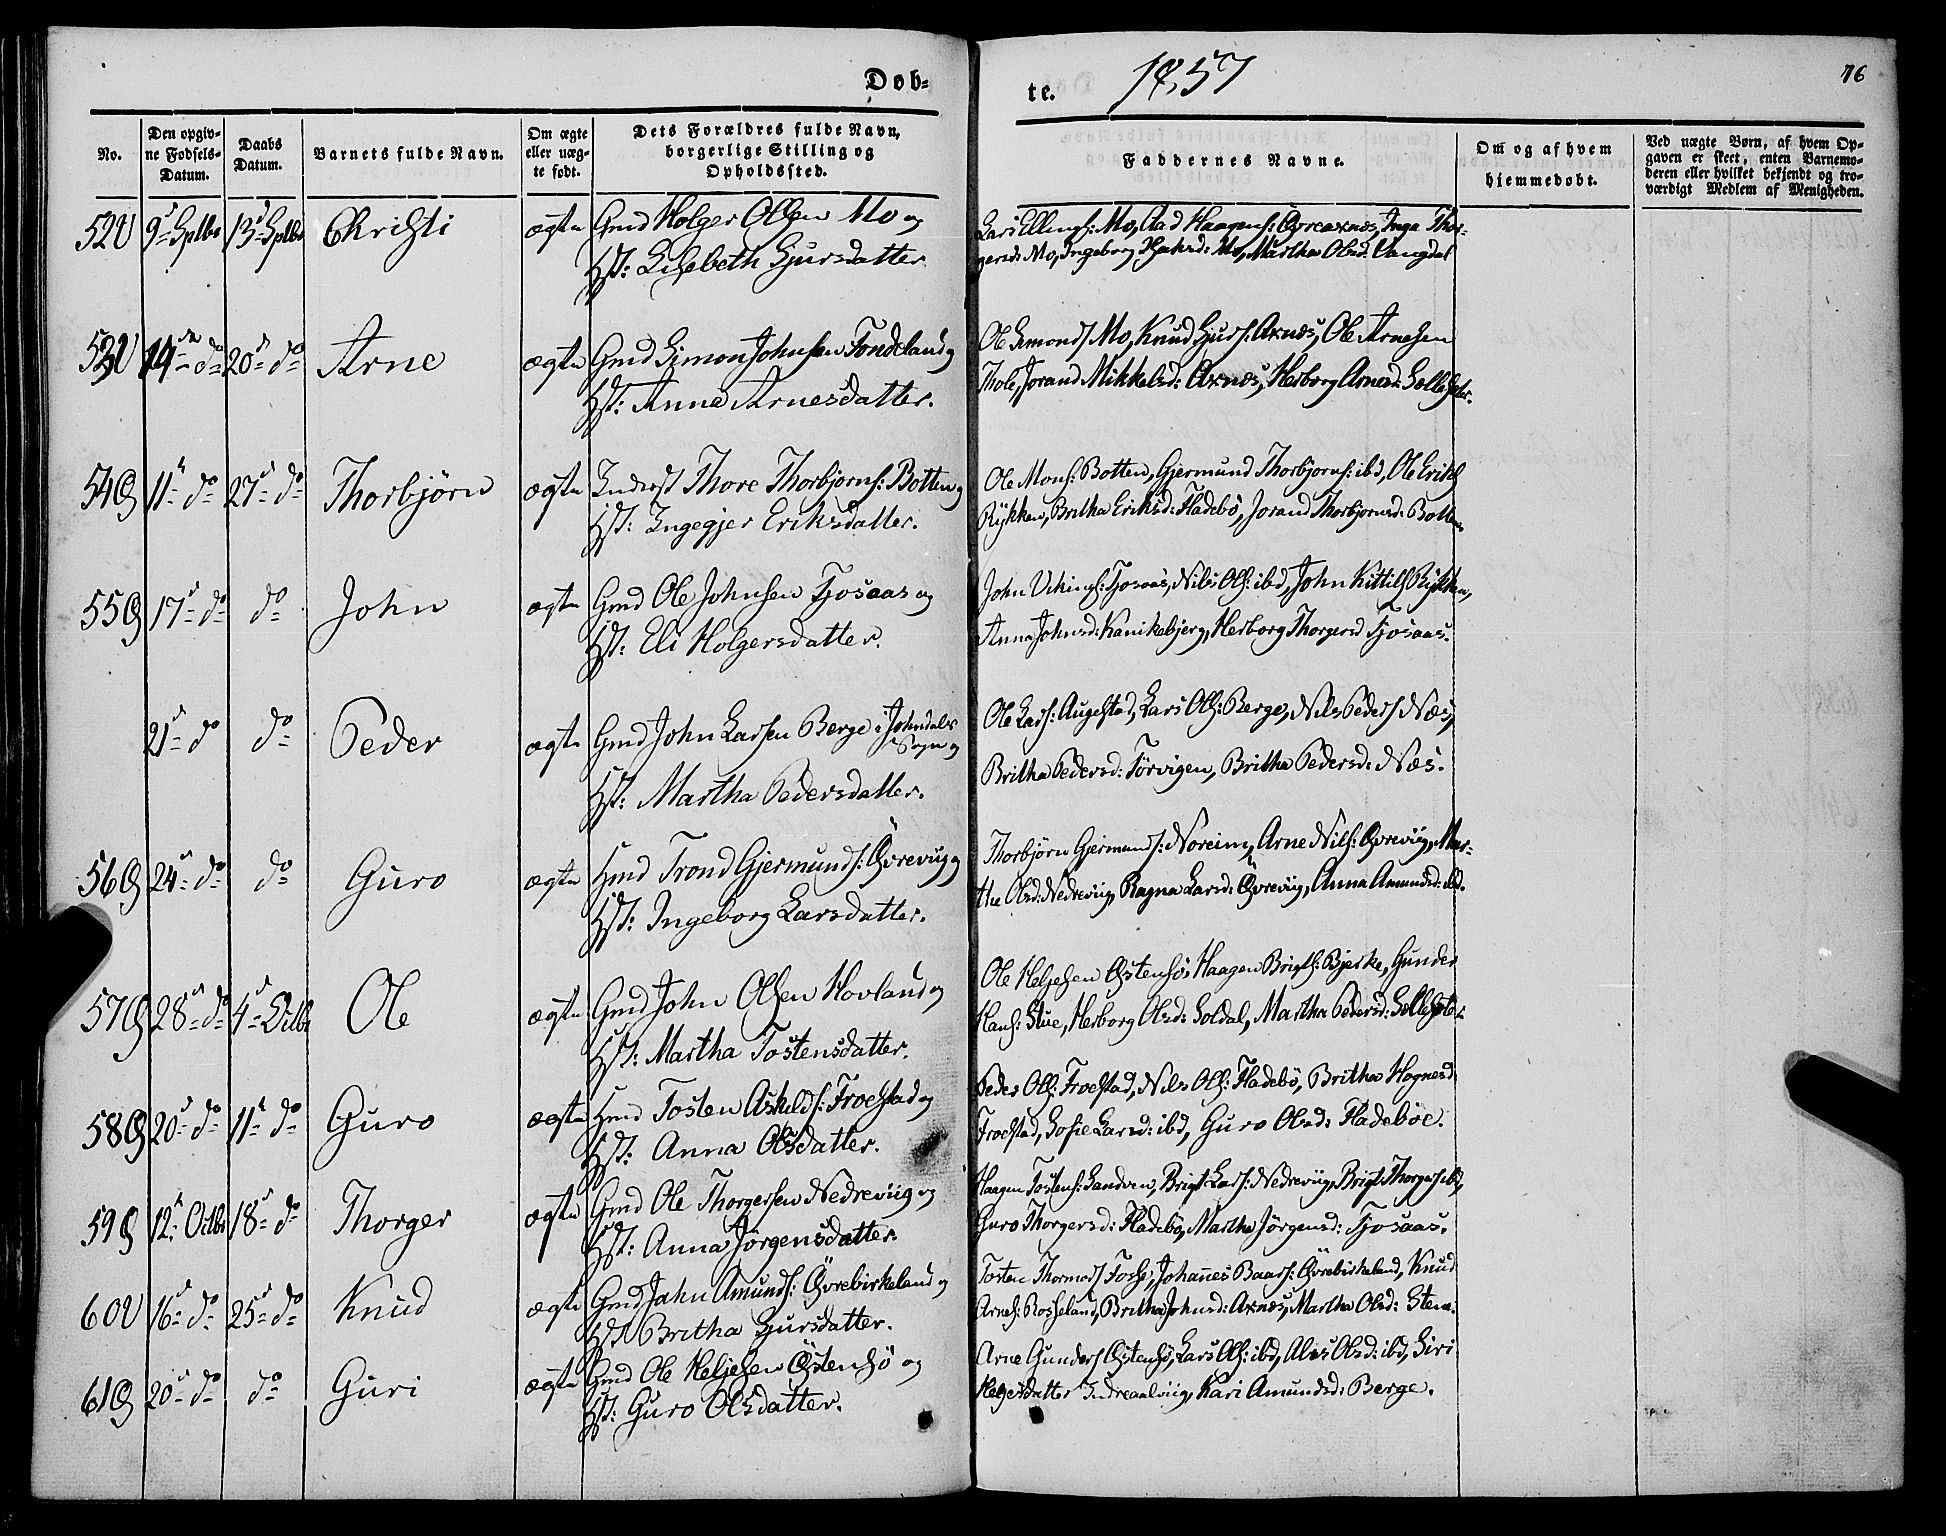 Døb-
te.
1857
76
No.
Den opgiv-
ne Fødsels-
Datum.
Daabs
Datum.
Barnets fulde Navn.
Om ægte
eller uæg-
te født.
Dets Forældres fulde Navn,
borgerlige Stilling og
Opholdssted.
Faddernes Navne.
Om og af hvem
hjemmedøbt.
Ved uægte Børn, af hvem Op-
gaven er skeet, enten Barnemo-
deren eller hvilket bekjendt og tro-
værdigt Medlem af Menigheden.
52V 9d Sptbr 13d Sptbr Christi ægte Gmd Holger Olsen Mo og
Hst: Lisebeth Gjursdatter
Lars Ellings: Mo, Aad Haagens: Øvreaxnes, Inga Thor-
gersd: Mo, Ingeborg Mo, Martha Olsd: Vangdal
53V 14de do 20d do Arne ægte Gmd Simon Johnsen Fondeland og
Hst: Anna Arnesdatter.
Ole Simons: Mo, Knud Gjurs: Axnæs, Ole Arnesen
Thole, Jorand Mikkelsd: Axnæs, Herborg Arnesd: Sollesete.
54Ø 11te do 27d do Thorbjörn ægte Inderst Thore Thorbjørns: Botten og
Hst: Ingegjer Eriksdatter.
Ole Mons: Botten, Gjermund Thorbjørns: ibd, Ole Eriks
Rykken, Britha Eriksd: Fladebö, Jorand Thorbjørnsd: Botten.
55Ø 17d do do John ægte Gmd Ole Johnsen Tjosaas og
Hst: Eli Holgersdatter.
John Vikings: Tjosaas, Nils Ols: ibd, John Kittils Rykken,
Anna Johnsd: Kanikebjerg, Herborg Thorgersd Tjosaas.
21d do do Peder ægte Gmd John Larsen Berge i Johndals
Sogn og
Hst: Martha Pedersdatter.
Ole Lars: Augestad, Lars Ols: Berge, Nils Peders Næs,
Britha Pedersd: Törvigen, Britha Pedersd: Næs.
56Ø 24d do do Guro ægte Hmd Trond Gjermunds: Øvreviig og
Hst: Ingeborg Larsdatter.
Thorbjörn Gjermunds: Noreim, Arne Nils: Øvreviig, Mar-
the Olsd: Nedreviig, Ragna Larsd: Øvreviig, Anna Amundsd: ibd.
57Ø 28d do 4d Octbr Ole ægte Gmd John Olsen Hovland og
Hst: Martha Tostensdatter.
Ole Heljesen Østensö, Haagen Brigts: Bjerke, Gunder
Hans: Stue, Herborg Olsd: Soldal, Martha Pedersd: Sollesete.
58Ø 20d do 11te do Guro ægte Hmd Tosten Askilds: Froestad og
Hst: Anna Olsdatter.
Peder Ols: Froestad, Nils Ols: Fladebö, Britha Hognesd:
Froestad, Sofie Larsd: ibd, Guro Olsd: Fladeböe.
59Ø 12te Octbr 18d do Thorger ægte Gmd Ole Thorgersen Nedreviig og
Hst: Anna Jörgensdatter.
Haagen Tostens: Sandven, Brigt Lars: Nedreviig, Brigt Thorgers ibd,
Guro Thorgersd: Fladebö, Martha Jörgensd: Tjosaas.
60V 16d do 25d do Knud ægte Gmd John Amunds: Øvrebirkeland og
Hst Britha Gjursdatter.
Tosten Thormods Fosse, Johannes Baars: Øvrebirkeland, Knud
Arnes: Rosseland, Britha Johnsd: Axnæs, Martha Olsd: Stene.
61Ø 20d do do Guri ægte Gmd Ole Heljesen Østensö og
Hst: Guro Olsdatter.
Arne Gunders Østensö, Lars Ols: ibd, Olsd: ibd, Siri
Heljesdatter Indreaalviig, Kari Amundsd: Berge.